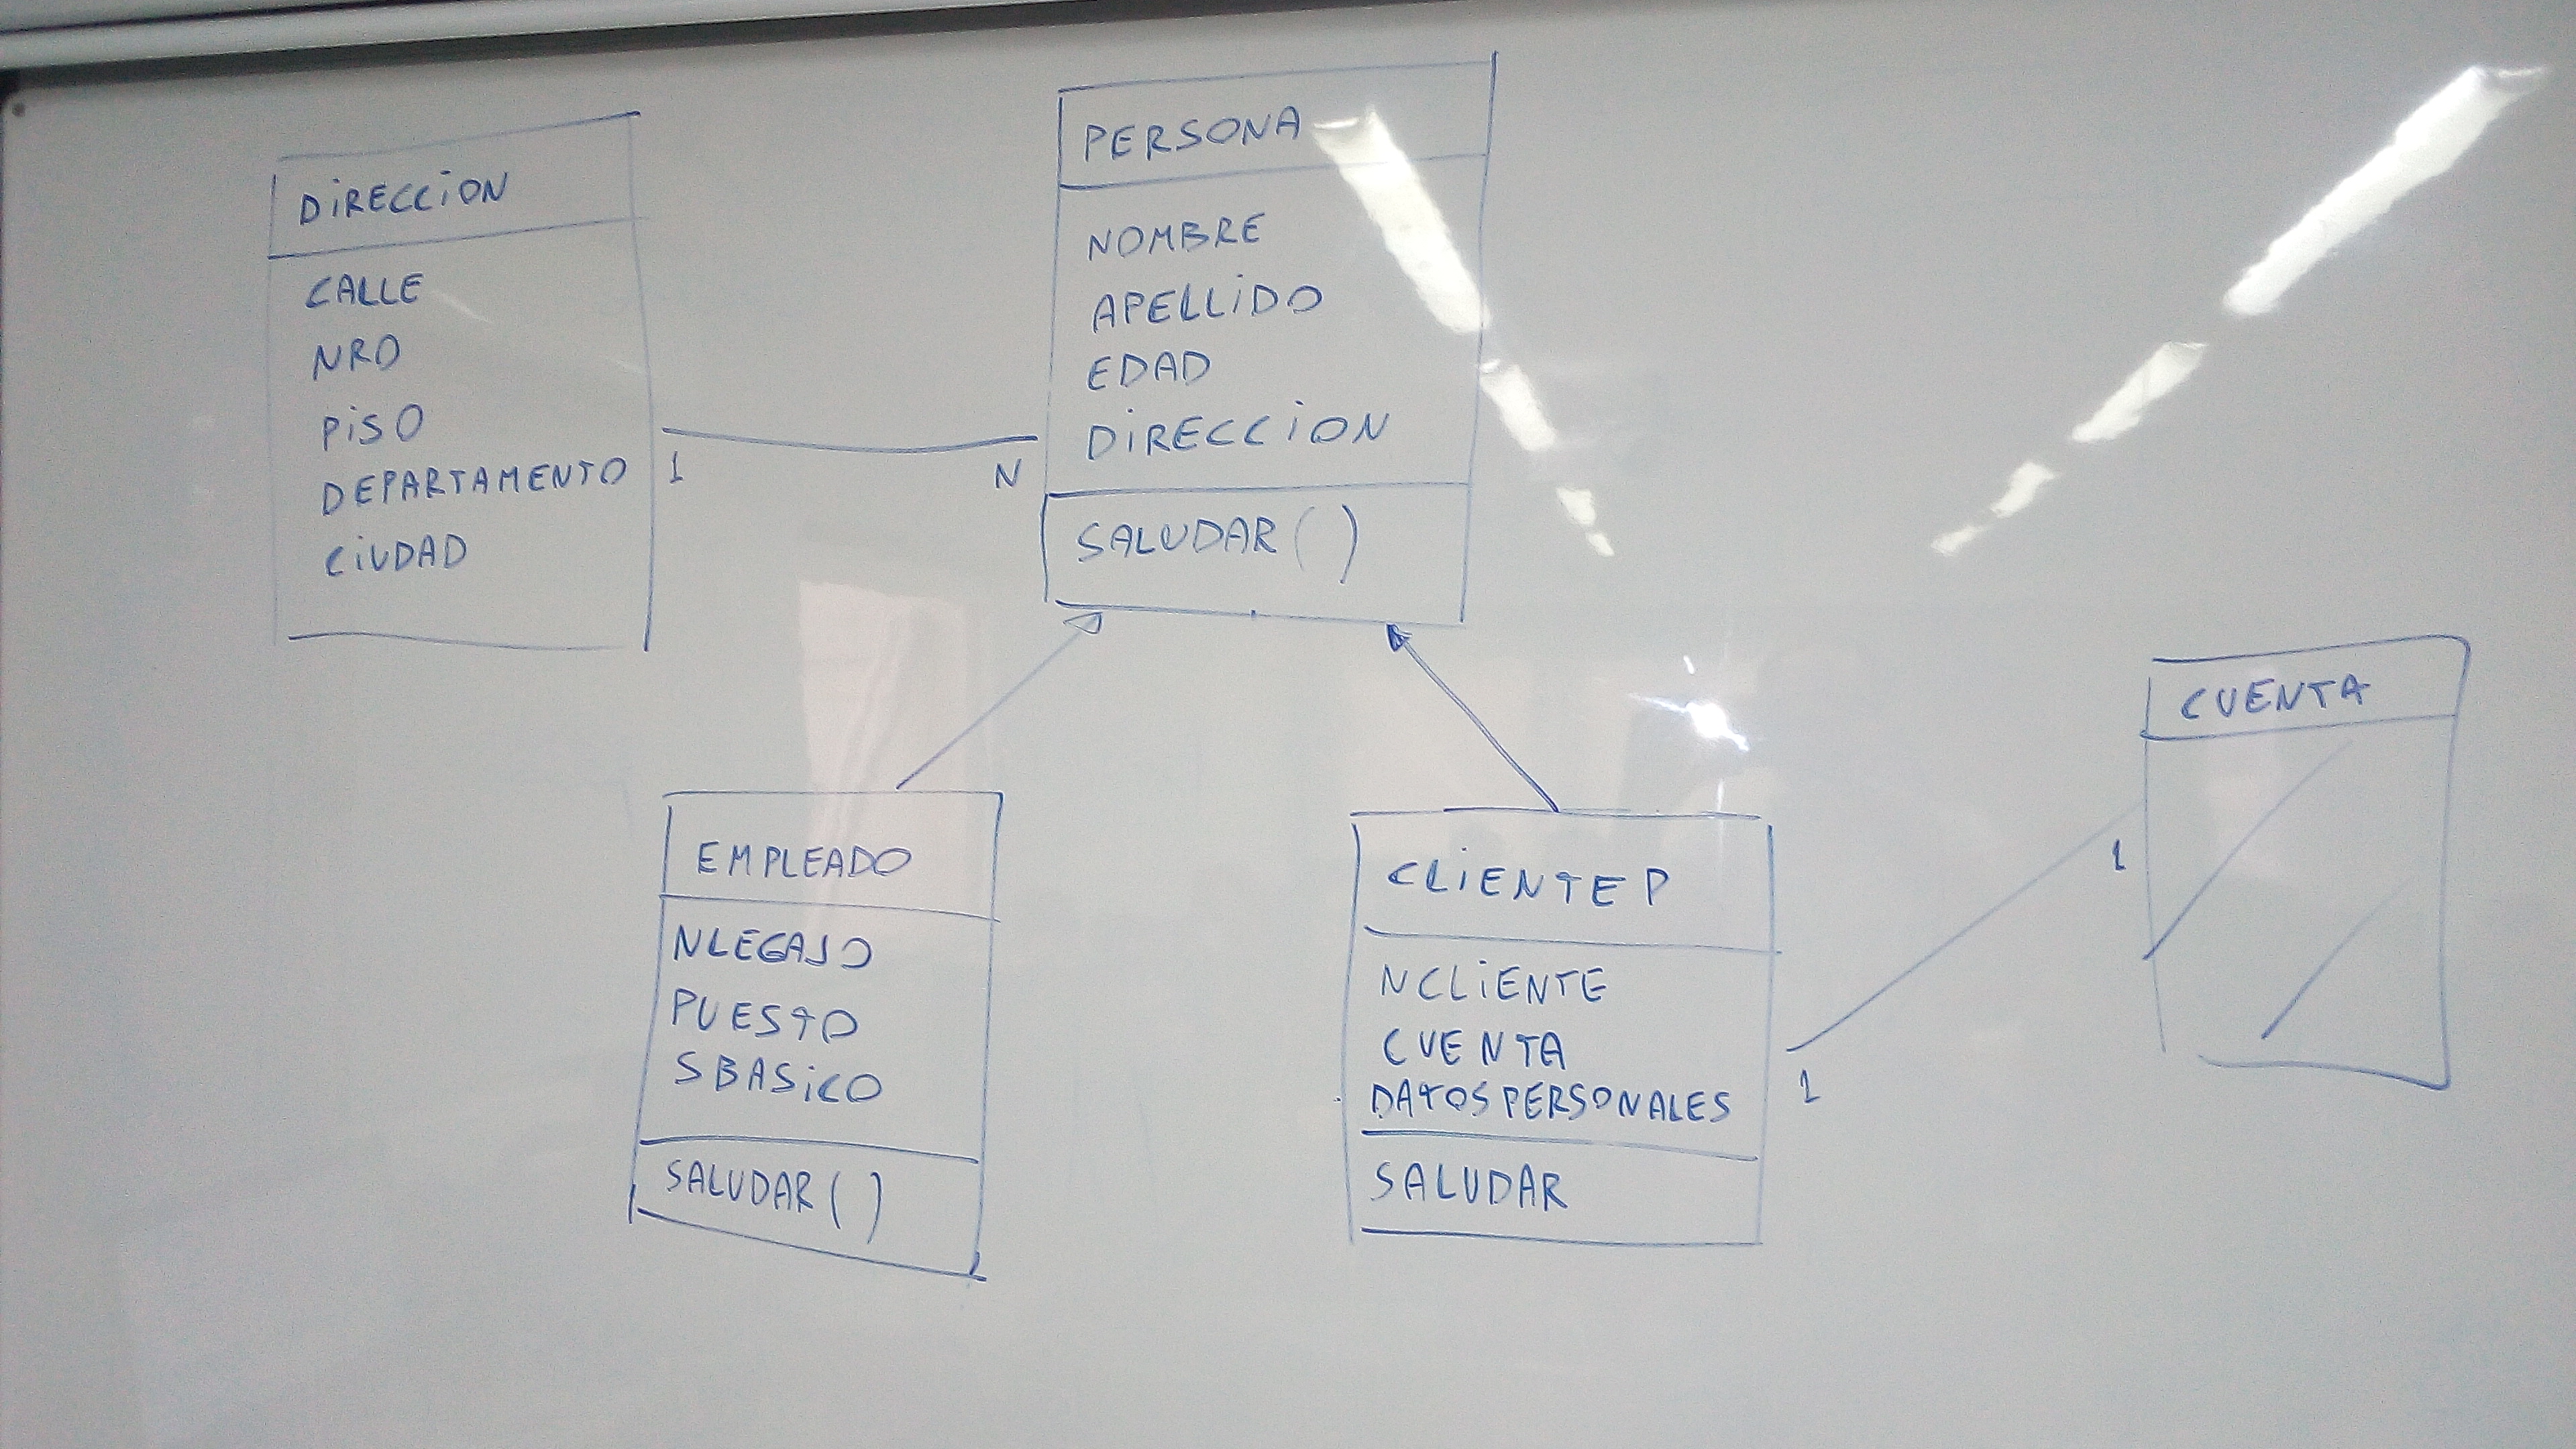 DIRECCION
CALLE
NRO
PISO
DEPARTAMENTO
CIUDAD
1
N
PERSONA
NOMBRE
APELLIDO
EDAD
DIRECCION
SALUDAR ( )
EMPLEADO
NLEGAJO
PUESTO
SBASICO
SALUDAR ( )
CLIENTE P
NCLIENTE
CUENTA
DATOSPERSONALES
SALUDAR
1
1
CUENTA